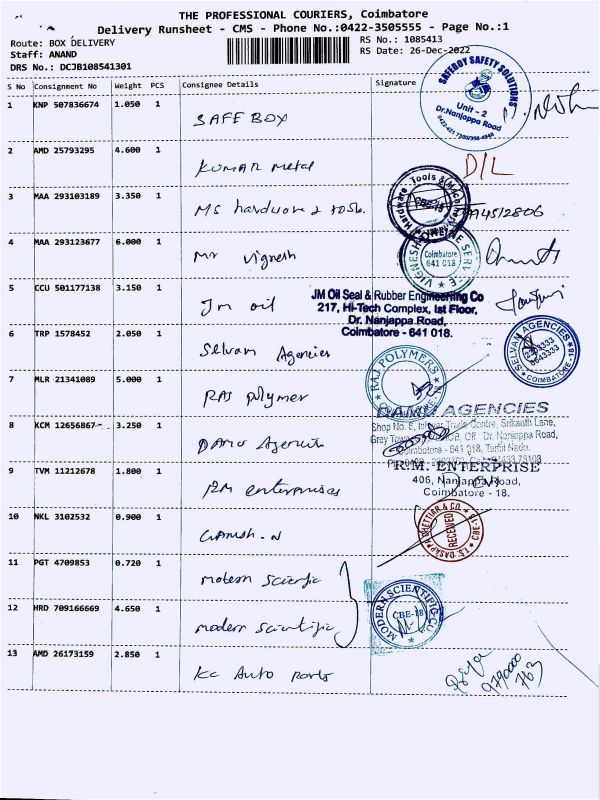 THE PROFESSIONAL COURIERS, Coimbatore
Delivery Runsheet - CMS - Phone No.:0422-3505555 - Page No.:1
Route: BOX DELIVERY RS No.: 1085413
Staff: ANAND RS Date: 26-Dec-2022
DRS No.: DCJB108541301
S No Consignment No Weight PCS Consignee Details Signature
SAFEBOY SAFETY SOLUTIONS
Unit - 2
Dr.Nanjappa Road
1 KNP 507836674 1.050 1 SAFE BOX
2 AMD 25793295 4.600 1 KUMAR metal D/L
Hardware Tools &
CBE-18
3 MAA 293103189 3.350 1 MS hardware & tools.
4 MAA 293123677 6.000 1 Mr Vignesh
VIGNESH SERVICE
Coimbatore
641 018
5 CCU 501177138 3.150 1 Jm oil
JM Oil Seal & Rubber Engineering Co
217, Hi-Tech Complex, Ist Floor,
Dr. Nanjappa Road,
Coimbatore - 641 018.
6 TRP 1578452 2.050 1 Selvan Agencies
SELVAN AGENCIES
COIMBATORE - 18
7 MLR 21341089 5.000 1 RAJ Polymer
RAJ POLYMERS
DAMU AGENCIES
8 KCM 12656867 3.250 1 DAMU Agencies
Trade Centre, Srikanth Lane,
Off Dr. Nanjappa Road,
Coimbatore - 641 018, Tamil Nadu.
9 TVM 11212678 1.800 1 RM enterprises
R.M. ENTERPRISE
406, Nanjappa Road,
Coimbatore - 18.
10 NKL 3102532 0.900 1 Ganesh.N
T.S. DASAPPA CHETTIAR & CO.
RECEIVED
11 PGT 4709853 0.720 1 motern Scienfic
12 HRD 709166669 4.650 1 modern scientific
MODERN SCIENTIFIC CO.
CBE-18
13 AMD 26173159 2.850 1 KC Auto parts
9790000
763